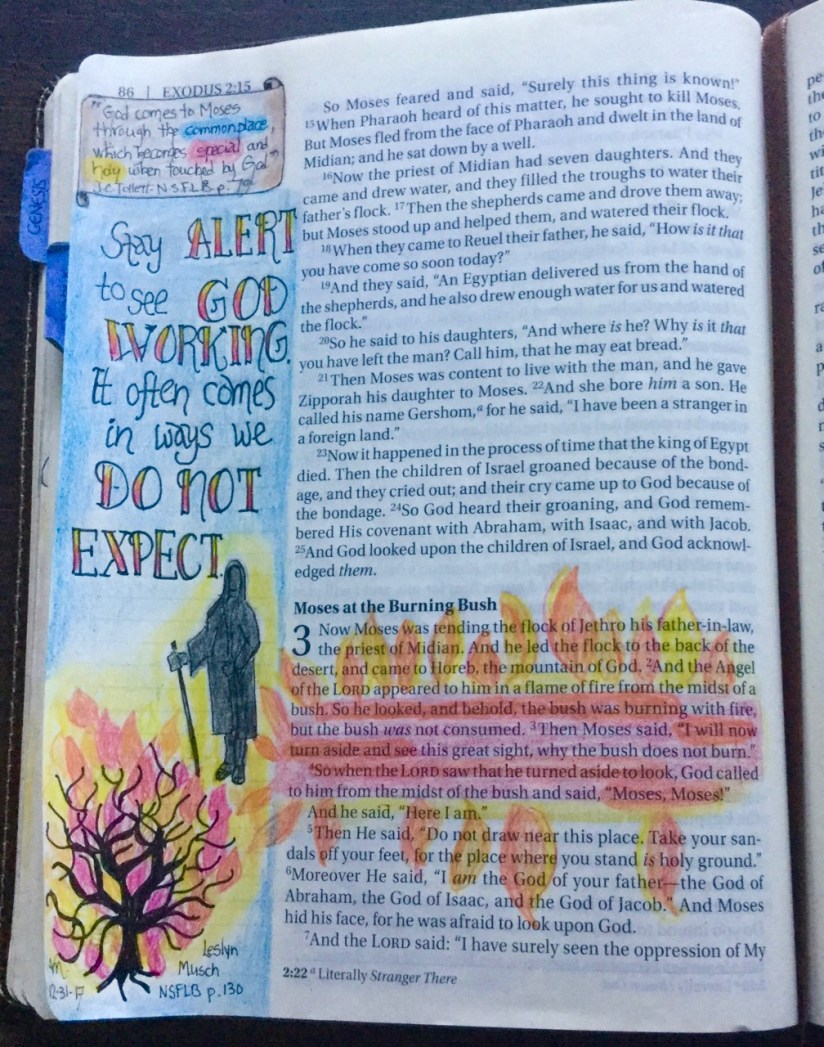 86 | EXODUS 2:15
"God comes to Moses
through the commonplace,
which becomes special and
holy when touched by God"
J.C. Tollett - NSFLB p.
GENESIS
Stay ALERT
to see GOD
WORKING.
It often comes
in ways we
DO NOT
EXPECT.
Leslyn
Musch
NSFLB p.130
12-31-17
So Moses feared and said, “Surely this thing is known!”
15When Pharaoh heard of this matter, he sought to kill Moses.
But Moses fled from the face of Pharaoh and dwelt in the land of
Midian; and he sat down by a well.
16Now the priest of Midian had seven daughters. And they
came and drew water, and they filled the troughs to water their
father’s flock. 17Then the shepherds came and drove them away;
but Moses stood up and helped them, and watered their flock.
18When they came to Reuel their father, he said, “How is it that
you have come so soon today?”
19And they said, “An Egyptian delivered us from the hand of
the shepherds, and he also drew enough water for us and watered
the flock.”
20So he said to his daughters, “And where is he? Why is it that
you have left the man? Call him, that he may eat bread.”
21Then Moses was content to live with the man, and he gave
Zipporah his daughter to Moses. 22And she bore him a son. He
called his name Gershom,a for he said, “I have been a stranger in
a foreign land.”
23Now it happened in the process of time that the king of Egypt
died. Then the children of Israel groaned because of the bond-
age, and they cried out; and their cry came up to God because of
the bondage. 24So God heard their groaning, and God remem-
bered His covenant with Abraham, with Isaac, and with Jacob.
25And God looked upon the children of Israel, and God acknowl-
edged them.
Moses at the Burning Bush
3 Now Moses was tending the flock of Jethro his father-in-law,
the priest of Midian. And he led the flock to the back of the
desert, and came to Horeb, the mountain of God. 2And the Angel
of the LORD appeared to him in a flame of fire from the midst of a
bush. So he looked, and behold, the bush was burning with fire,
but the bush was not consumed. 3Then Moses said, “I will now
turn aside and see this great sight, why the bush does not burn.”
4So when the LORD saw that he turned aside to look, God called
to him from the midst of the bush and said, “Moses, Moses!”
And he said, “Here I am.”
5Then He said, “Do not draw near this place. Take your san-
dals off your feet, for the place where you stand is holy ground.”
6Moreover He said, “I am the God of your father—the God of
Abraham, the God of Isaac, and the God of Jacob.” And Moses
hid his face, for he was afraid to look upon God.
7And the LORD said: “I have surely seen the oppression of My
2:22 a Literally Stranger There